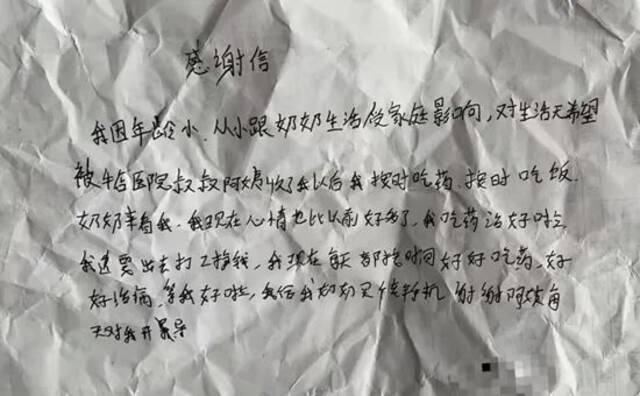 感谢信
我因年龄小.从小跟奶奶生活受家庭影响,对生活无希望
被 医院叔叔阿姨收了我以后我按时吃药.按时吃饭.
奶奶 着我.我现在心情也比以前好多了,我吃药治好时
我还要出去打工挣钱,我现在每天都按时间好好吃药、好
好治病.等我好 ,我给我奶奶买 手机 谢谢阿姨每
天对我开导